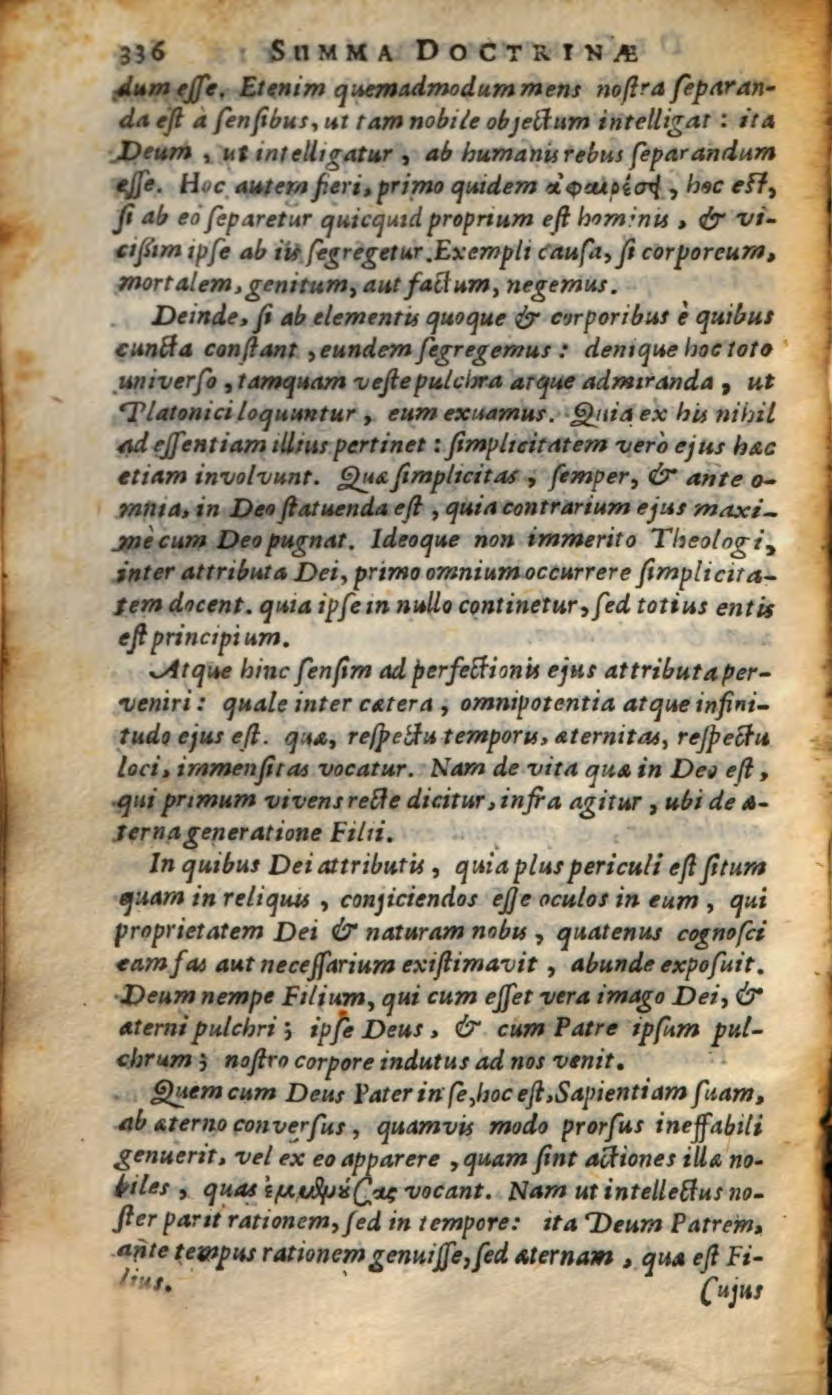 336 SUMMA DOCTRINÆ
dum eſſe. Etenim quemadmodum mens noſtra ſeparan-
da eſt à ſenſibus, ut tam nobile objectum intelligat : ita
Deum , ut intelligatur , ab humanis rebus ſeparandum
eſſe. Hoc autem fieri, primo quidem ἀφαιρέσει , hoc eſt,
ſi ab eo ſeparetur quicquid proprium eſt hominis , & vi-
ciſſim ipſe ab iis ſegregetur. Exempli cauſa, ſi corporeum,
mortalem, genitum, aut factum, negemus.
Deinde, ſi ab elementis quoque & corporibus è quibus
cuncta conſtant , eundem ſegregemus : denique hoc toto
univerſo , tamquam veſte pulchra atque admiranda , ut
Platonici loquuntur , eum exuamus. Quia ex his nihil
ad eſſentiam illius pertinet : ſimplicitatem verò ejus hæc
etiam involvunt. Quæ ſimplicitas , ſemper, & ante o-
mnia, in Deo ſtatuenda eſt , quia contrarium ejus maxi-
mè cum Deo pugnat. Ideoque non immerito Theologi,
inter attributa Dei, primo omnium occurrere ſimplicita-
tem docent. quia ipſe in nullo continetur, ſed totius entis
eſt principium.
Atque hinc ſenſim ad perfectionis ejus attributa per-
veniri : quale inter cætera , omnipotentia atque infini-
tudo ejus eſt. quæ, reſpectu temporis, æternitas, reſpectu
loci, immenſitas vocatur. Nam de vita quæ in Deo eſt ,
qui primum vivens recte dicitur, infra agitur , ubi de æ-
terna generatione Filii.
In quibus Dei attributis , quia plus periculi eſt ſitum
quam in reliquis , conjiciendos eſſe oculos in eum , qui
proprietatem Dei & naturam nobis , quatenus cognoſci
eam fas aut neceſſarium exiſtimavit , abunde expoſuit.
Deum nempe Filium, qui cum eſſet vera imago Dei, &
æterni pulchri ; ipſe Deus , & cum Patre ipſum pul-
chrum ; noſtro corpore indutus ad nos venit.
Quem cum Deus Pater in ſe, hoc eſt, Sapientiam ſuam,
ab æterno converſus , quamvis modo prorſus ineffabili
genuerit, vel ex eo apparere , quam ſint actiones illæ no-
biles , quas vocant. Nam ut intellectus no-
ſter parit rationem, ſed in tempore: ita Deum Patrem,
ante tempus rationem genuiſſe, ſed æternam , quæ eſt Fi-
lius.
Cujus